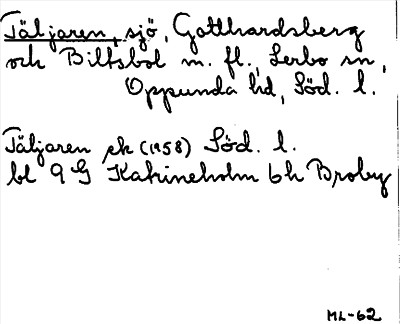 Täljaren, sjö, Gotthardsberg
och Biltsbol m. fl., Lerbo sn,
Oppunda hd, Söd. l.
Täljaren ek (1958) Söd. l.
bl 9 G Katrineholm 6h Broby
ML-62